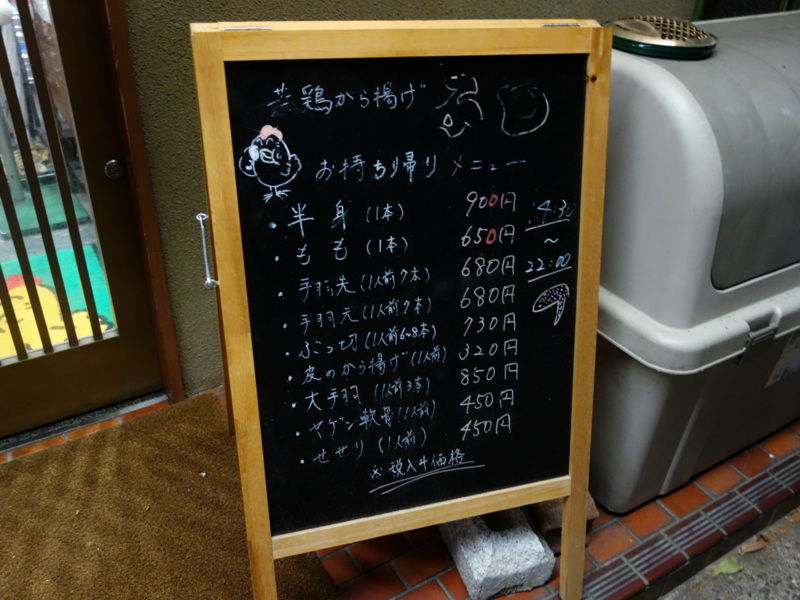 若鶏から揚げ
お持ち帰り メニュー
・半身(1本) 900円
・もも(1本) 650円
・手羽先(1人前7本) 680円
・手羽元(1人前7本) 680円
・ぶつ切(1人前6~8本) 730円
・皮のから揚げ(1人前) 320円
・大手羽(1人前3本) 850円
・ヤゲン軟骨(1人前) 450円
・せせり(1人前) 450円
※税入り価格
4:30
~
22:00